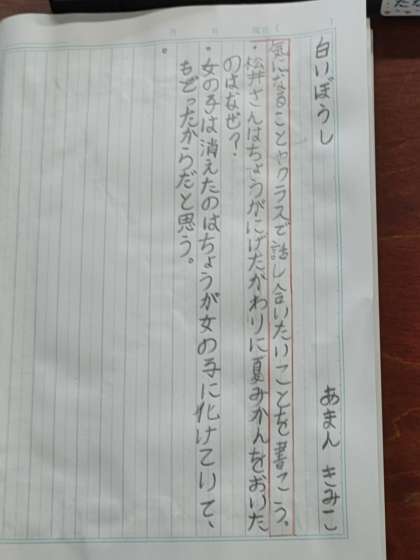 白いぼうし　あまん きみこ
気になることやクラスで話し合いたいことを書こう。
・松井さんはちょうがにげたかわりに夏みかんをおいた
のはなぜ？
・女の子は消えたのはちょうが女の子に化けていて、
もどったからだと思う。